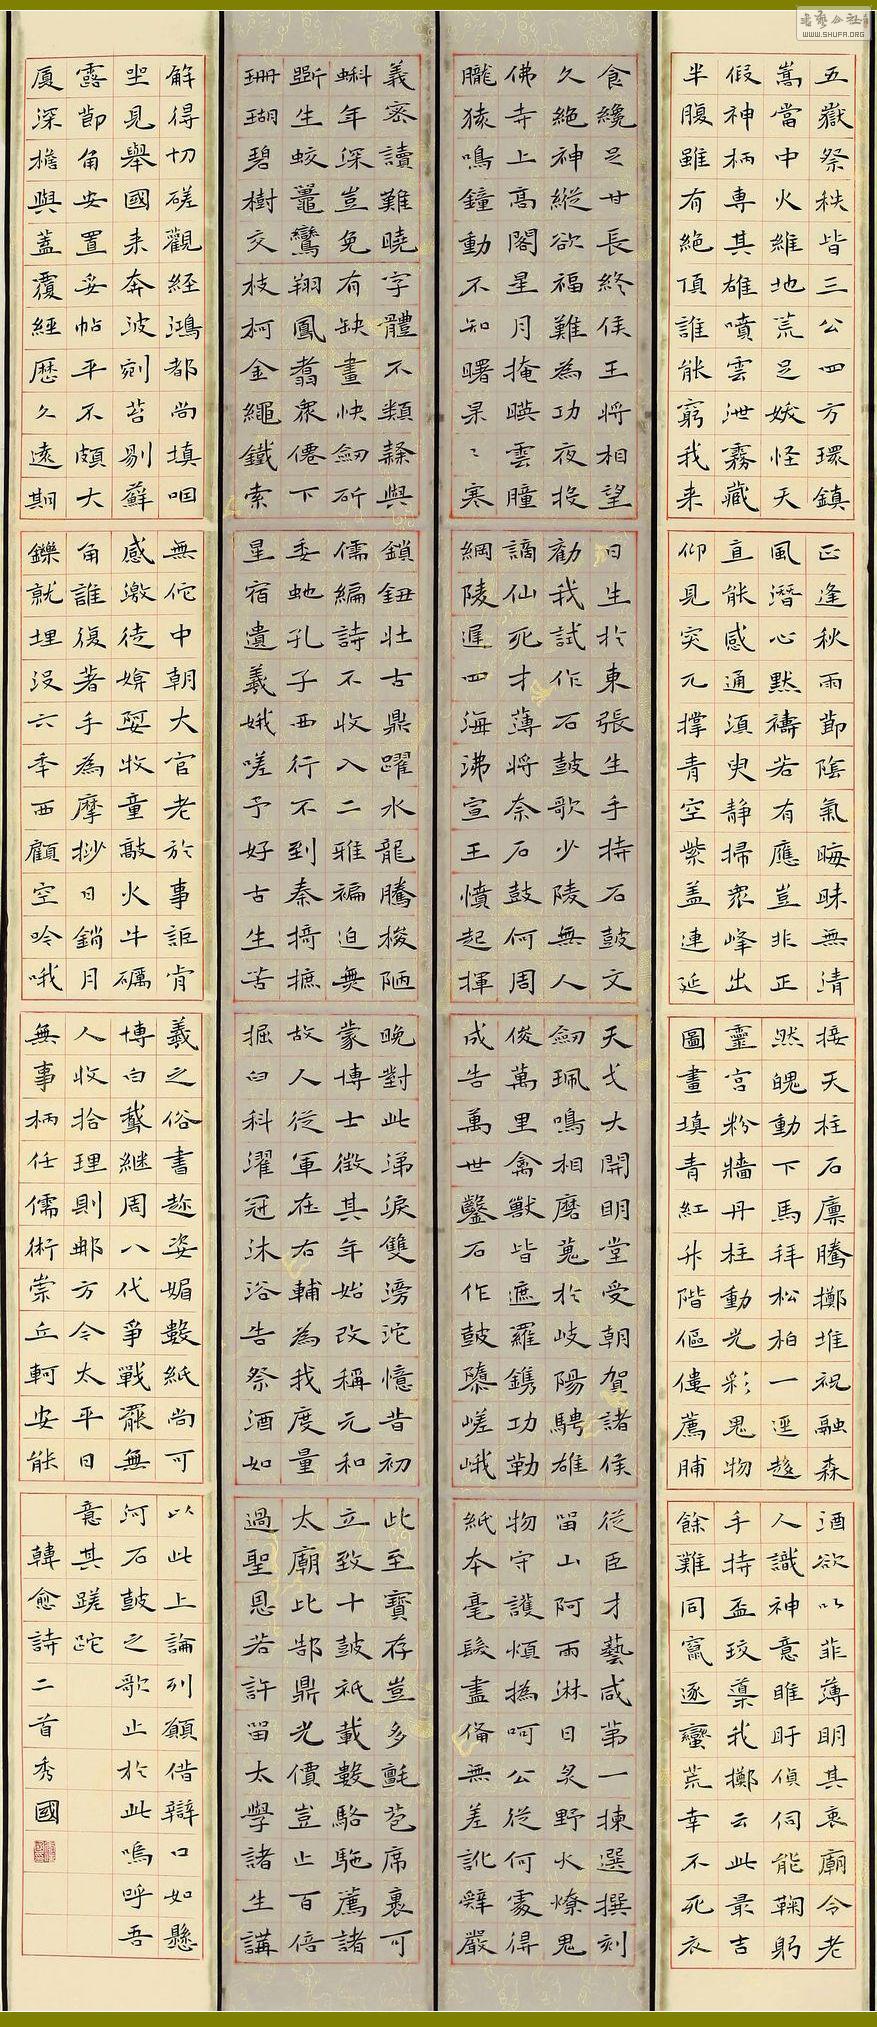 五嶽祭秩皆三公四方環鎮
嵩當中火維地荒足妖怪天
假神柄專其雄噴雲泄霧藏
半腹雖有絕頂誰能窮我来
正逢秋雨節陰氣晦昧無清
風潛心默禱若有應豈非正
直能感通須臾静掃衆峰出
仰見突兀撑青空紫盖連延
接天柱石廩騰擲堆祝融森
然魄動下馬拜松柏一逕趍
靈宮粉牆丹柱動光彩鬼物
圖畫填青紅升階傴僂薦脯
酒欲以菲薄明其衷廟令老
人識神意睢盱偵伺能鞠躬
手持盃珓導我擲云此最吉
餘難同竄逐蠻荒幸不死衣
食纔足甘長終侯王將相望
久絕神縱欲福難為功夜投
佛寺上高閣星月掩暎雲朣
朧猿鳴鐘動不知曙杲〻寒
日生於東張生手持石鼓文
勸我試作石鼓歌少陵無人
謫仙死才薄將奈石鼓何周
綱陵遲四海沸宣王憤起揮
天戈大開明堂受朝賀諸侯
劒珮鳴相磨蒐於岐陽騁雄
俊萬里禽獸皆遮羅鐫功勒
成告萬世鑿石作鼓隳嵯峨
從臣才藝咸第一揀選撰刻
留山阿雨淋日炙野火燎鬼
物守護煩撝呵公從何處得
紙本毫髮盡俻無差訛辭嚴
義密讀難曉字體不類隸與
蝌年深豈免有缺畫快劒斫
斷生蛟鼉鸞翔鳳翥衆僊下
珊瑚碧樹交枝柯金繩鐵索
鎖鈕壯古鼎躍水龍騰梭陋
儒編詩不收入二雅褊迫無
委虵孔子西行不到秦掎摭
星宿遺羲娥嗟予好古生苦
晚對此涕淚雙滂沱憶昔初
蒙博士徵其年始改稱元和
故人從軍在右輔為我度量
掘臼科濯冠沐浴告祭酒如
此至寶存豈多氈苞席裹可
立致十鼓祇載數駱駞薦諸
太廟比郜鼎光價豈止百倍
過聖恩若許留太學諸生講
解得切磋觀經鴻都尚填咽
坐見舉國来奔波剜苔剔蘚
露節角安置妥帖平不頗大
厦深檐與蓋覆經歷久遠期
無佗中朝大官老於事詎肯
感激徒媕娿牧童敲火牛礪
角誰復著手為摩挱日銷月
鑠就埋没六年西顧空吟哦
羲之俗書趂姿媚數紙尚可
博白鵞継周八代爭戰罷無
人收拾理則那方今太平日
無事柄任儒術崇丘軻安能
以此上論列願借辯口如懸
河石鼓之歌止於此嗚呼吾
意其蹉跎
韓愈詩二首秀國
WWW.SHUFA.ORG